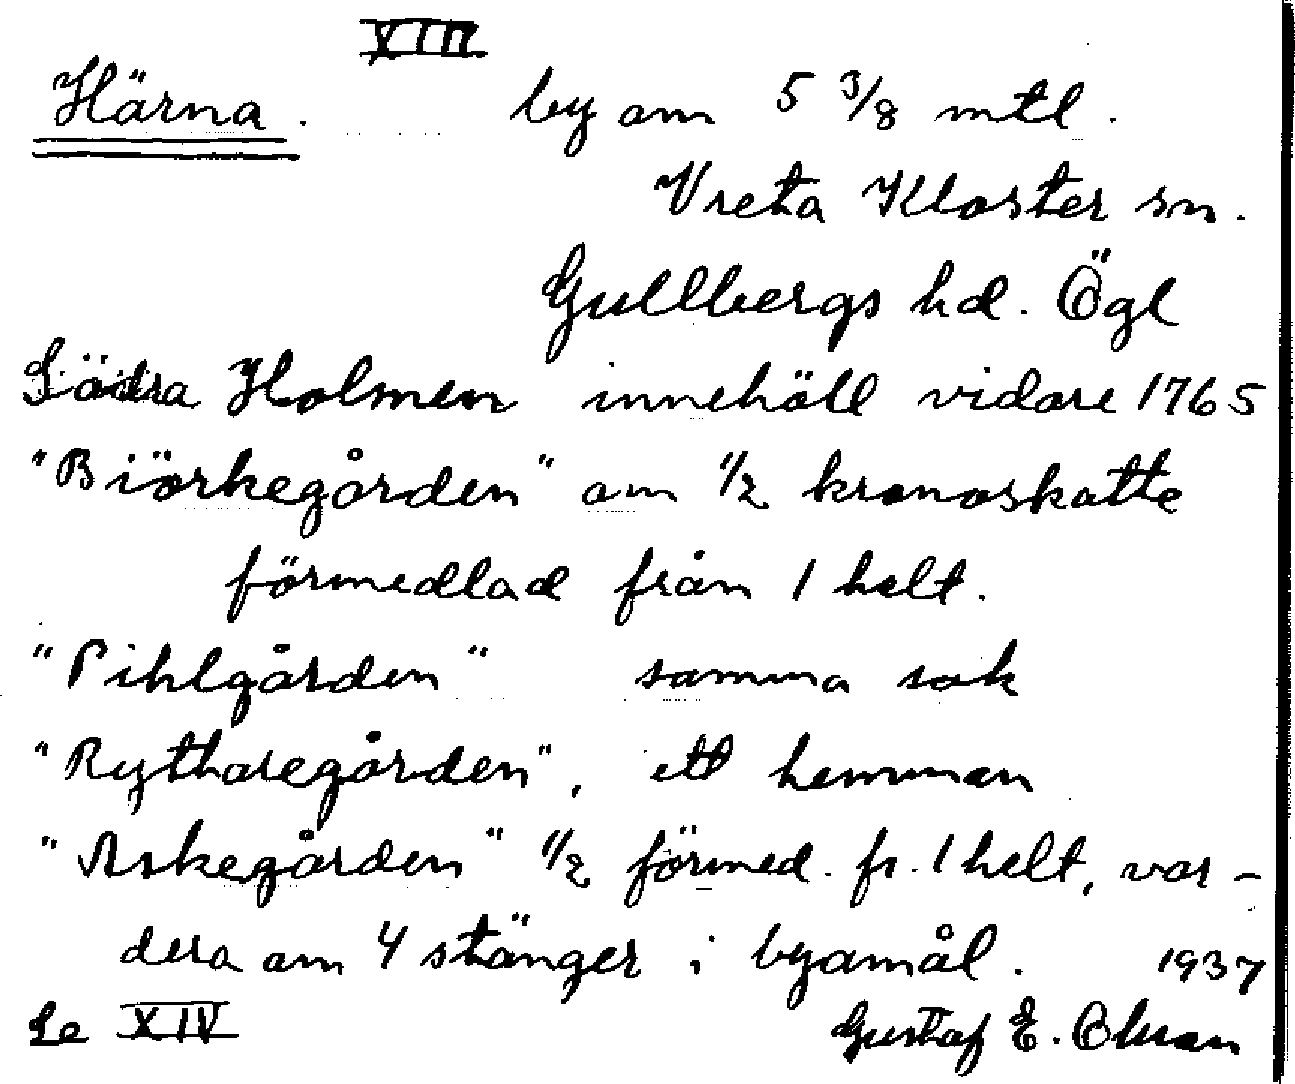 XIII
Härna. by om 5 3/8 mtl.
Vreta Kloster sn.
Gullbergs hd. Ögl
Södra Holmen innehöll vidare 1765
"Biörkegården" om 1/2 kronoskatte
förmedlad från 1 helt.
"Pihlgården" samma sak
"Rytharegården", ett hemman
"Askegården" 1/2 förmed. fr. 1 helt, var-
dera om 4 stänger i byamål. 1937
Se XIV Gustaf E. Olsson